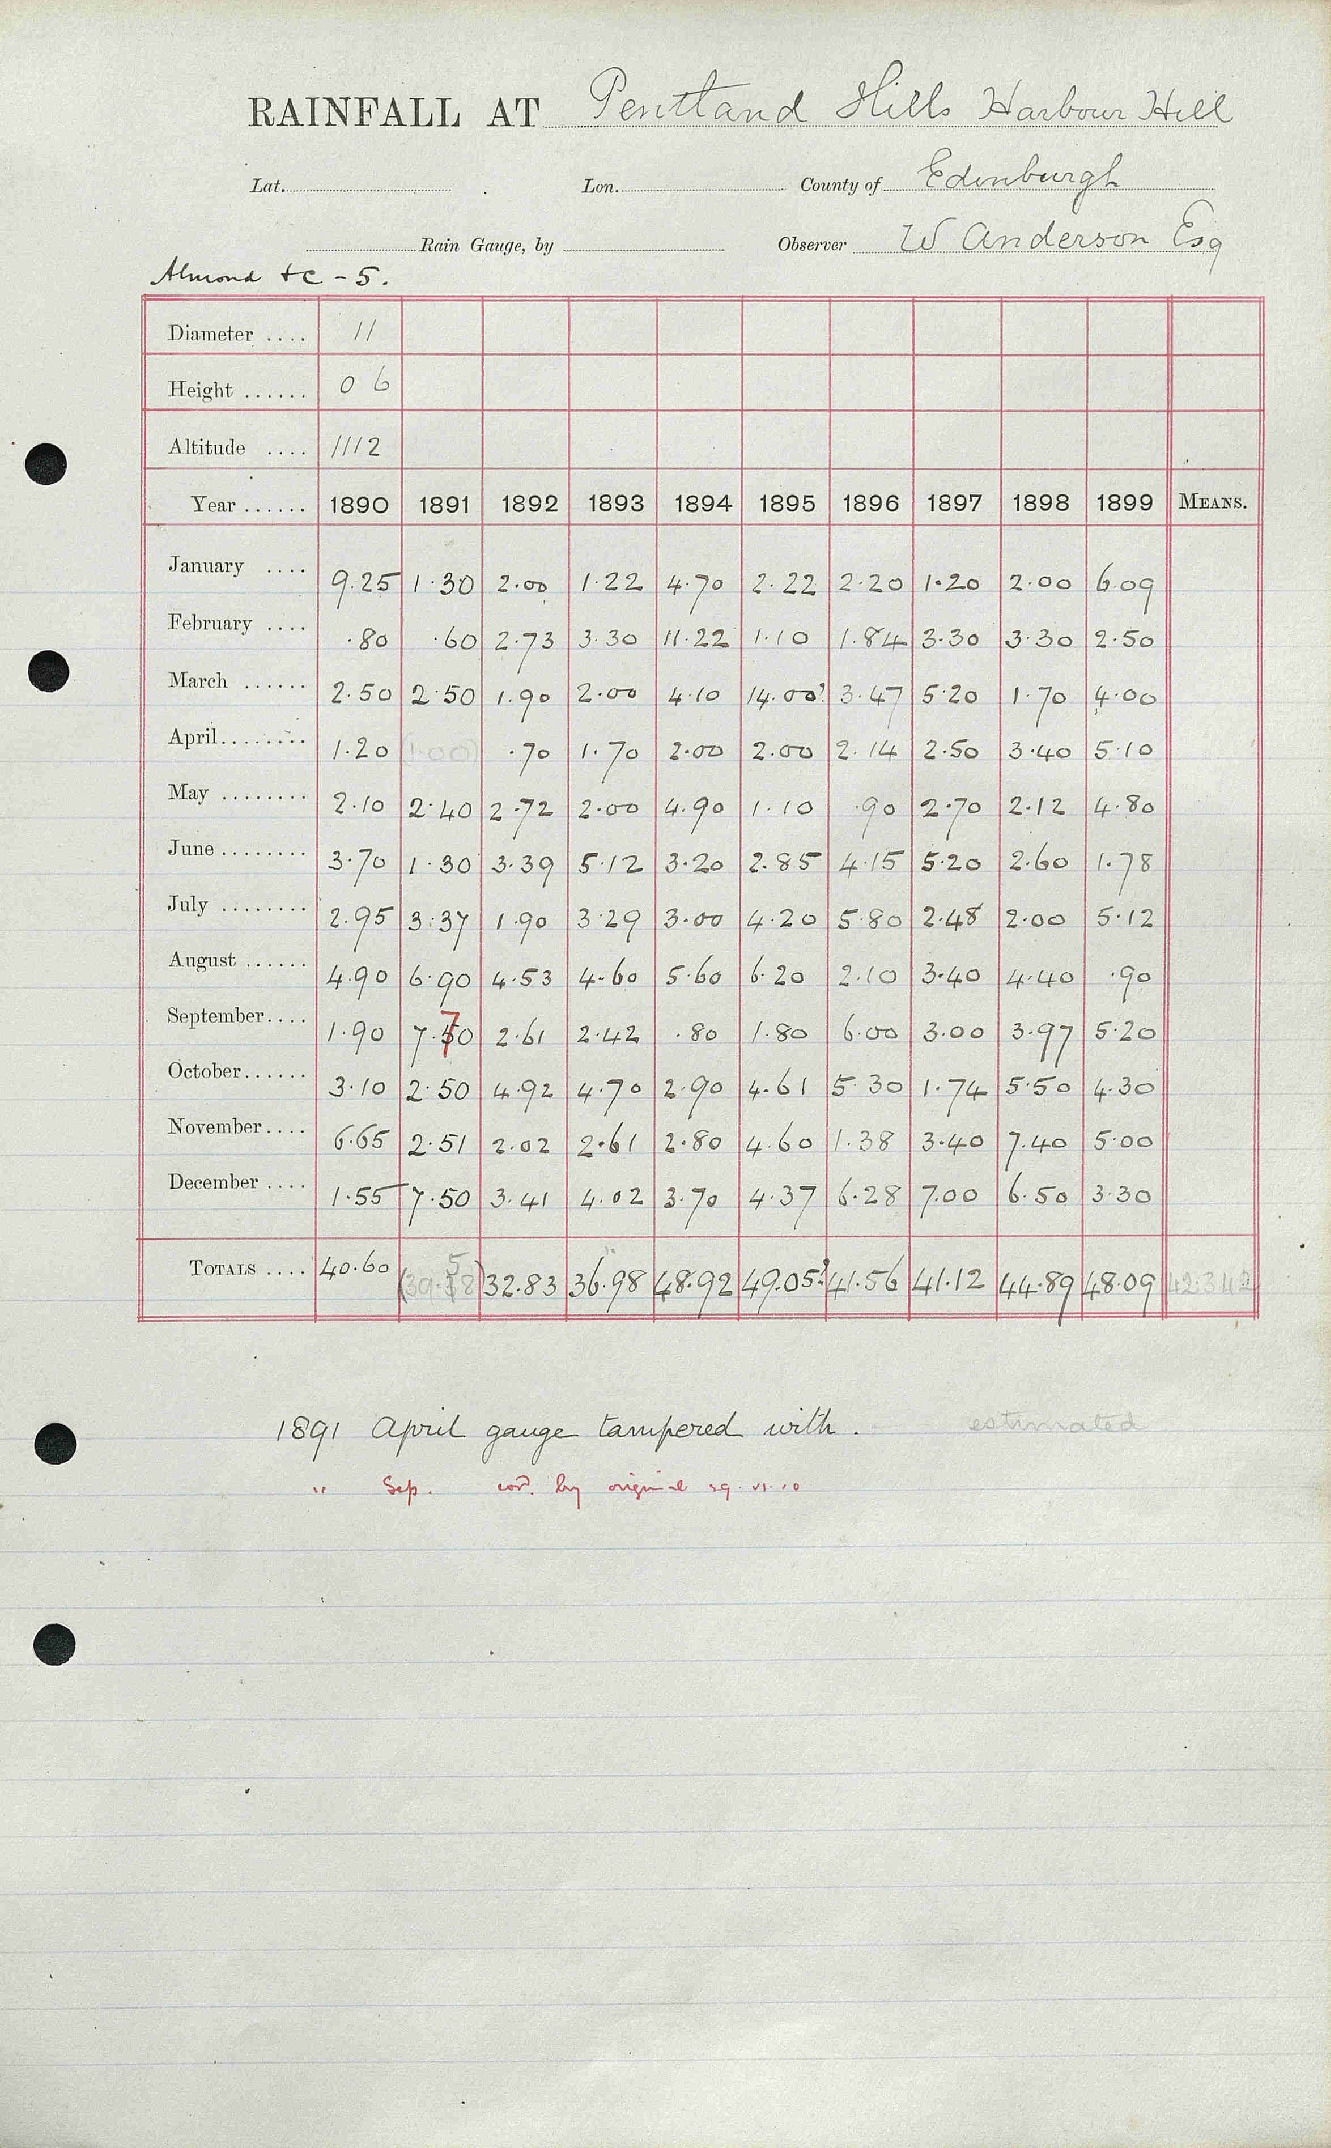 RAINFALL AT Pentland Hills Harbour Hill
Lat. Lon. County of Edinburgh
Rain Gauge, by Observer W Anderson Esq
Almond &c - 5.
Diameter .... 11
Height ...... 0 6
Altitude .... 1112
Year ...... 1890 1891 1892 1893 1894 1895 1896 1897 1898 1899 MEANS.
January .... 9.25 1.30 2.00 1.22 4.70 2.22 2.20 1.20 2.00 6.09
February .... .80 .60 2.73 3.30 11.22 1.10 1.84 3.30 3.30 2.50
March ...... 2.50 2.50 1.90 2.00 4.10 14.00? 3.47 5.20 1.70 4.00
April........ 1.20 (1.00) .70 1.70 2.00 2.00 2.14 2.50 3.40 5.10
May ........ 2.10 2.40 2.72 2.00 4.90 1.10 .90 2.70 2.12 4.80
June ........ 3.70 1.30 3.39 5.12 3.20 2.85 4.15 5.20 2.60 1.78
July ........ 2.95 3.37 1.90 3.29 3.00 4.20 5.80 2.48 2.00 5.12
August ...... 4.90 6.90 4.53 4.60 5.60 6.20 2.10 3.40 4.40 .90
September.... 1.90 7.70 2.61 2.42 .80 1.80 6.00 3.00 3.97 5.20
October...... 3.10 2.50 4.92 4.70 2.90 4.61 5.30 1.74 5.50 4.30
November.... 6.65 2.51 2.02 2.61 2.80 4.60 1.38 3.40 7.40 5.00
December .... 1.55 7.50 3.41 4.02 3.70 4.37 6.28 7.00 6.50 3.30
TOTALS .... 40.60 (39.58) 32.83 36.98 48.92 49.05? 41.56 41.12 44.89 48.09 42.342
1891 April gauge tampered with. estimated
" Sep. cord. by original